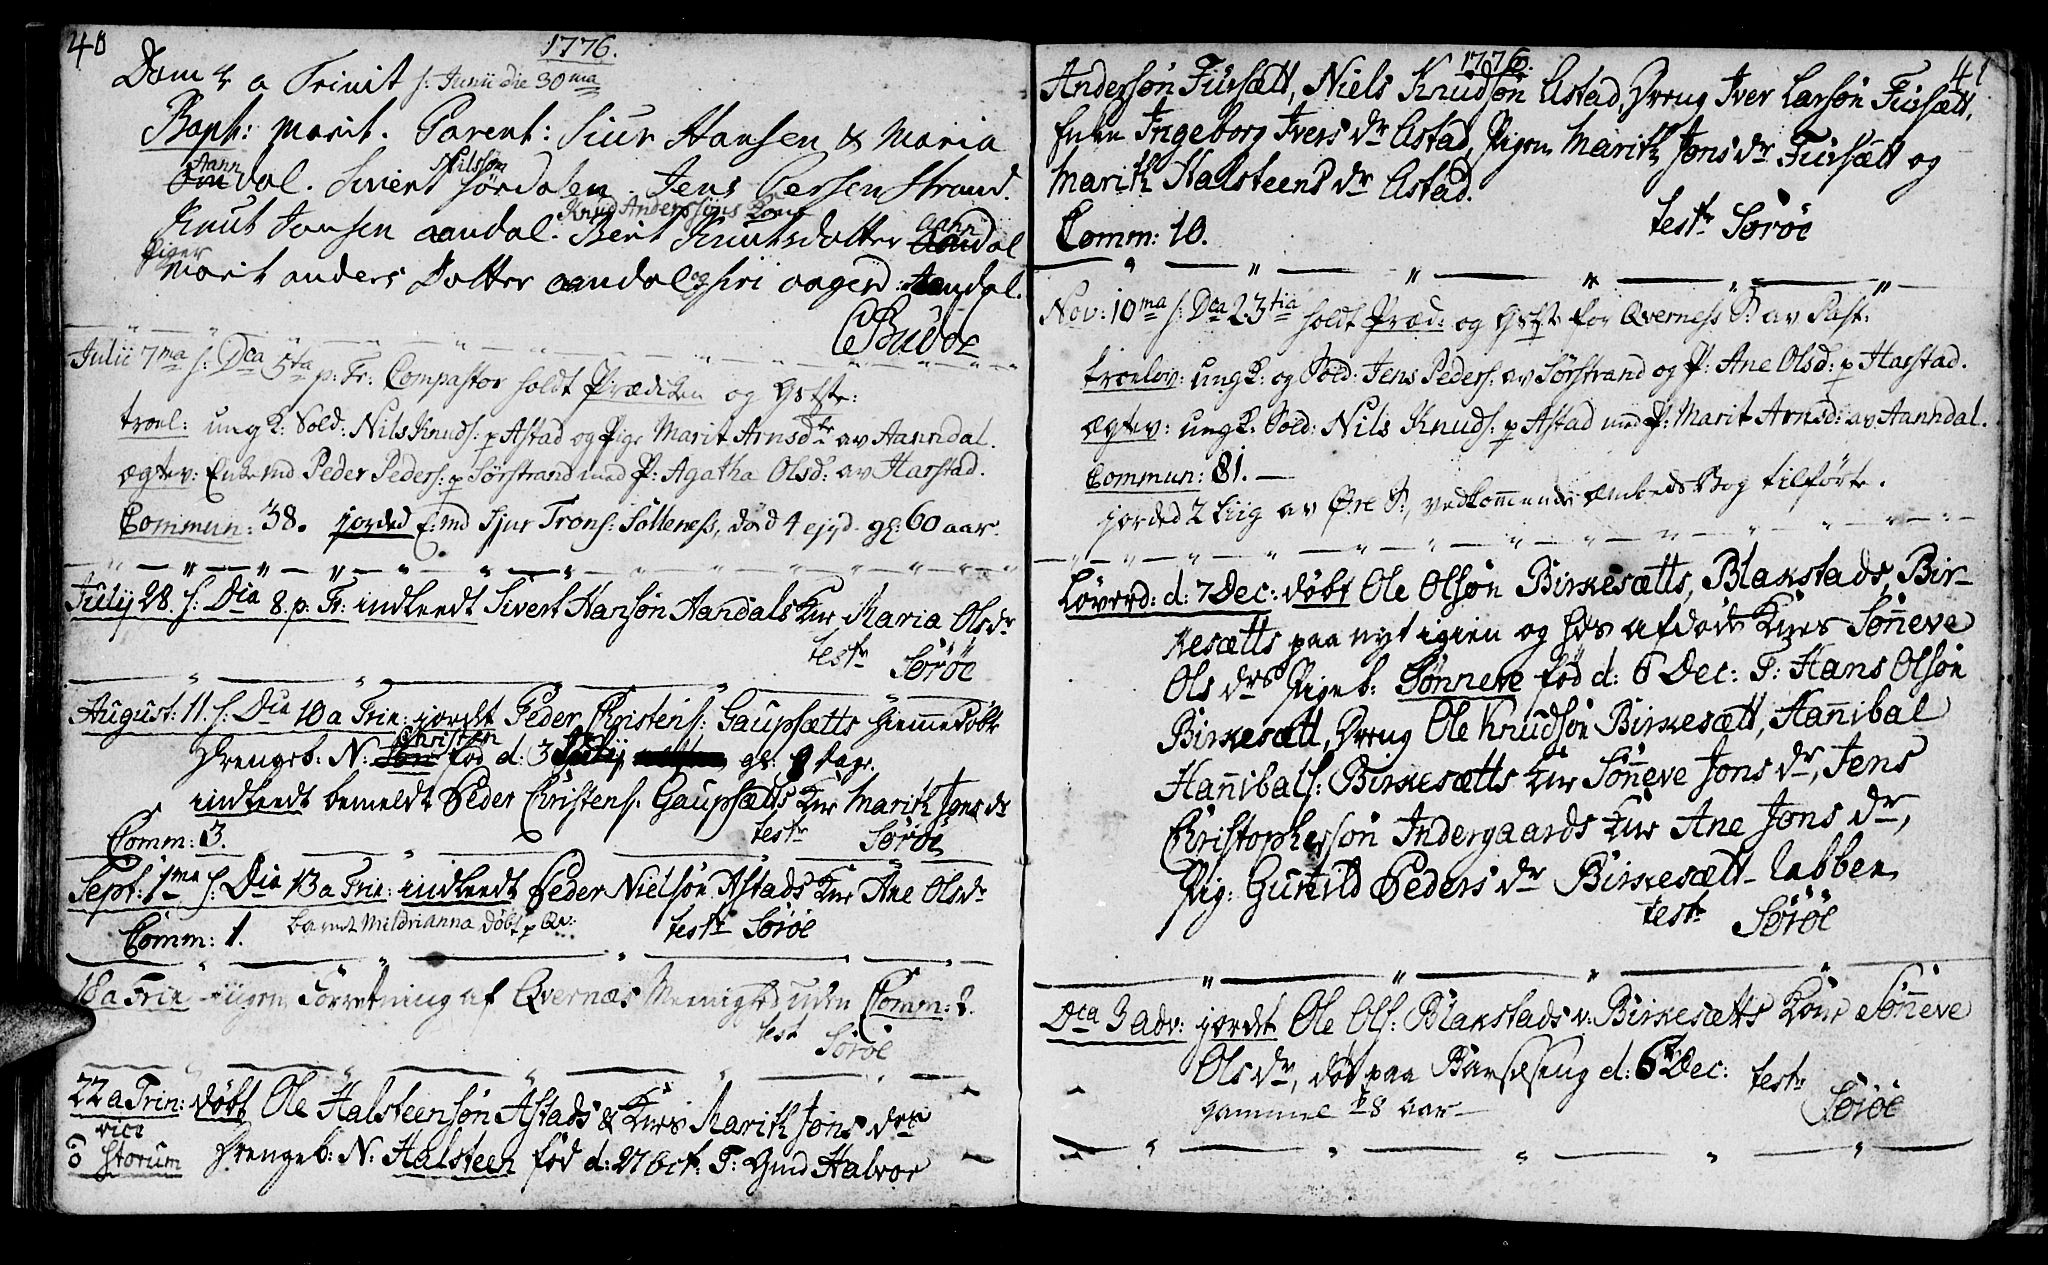 40
1776.
Dom 4 a Trinit s: Junii die 30ma
Bapt: Marit. Parent: Siur Hansen & Maria
Aandal. Siwert Nilssøn Sørdalen. Jens Persen Strand.
Knud Anderssøns Kone
Knut Jonsen aandal. Bert Knutsdotter Aandal
Piger
Marit anders Dotter aandal og Siri Aandal.
CBudoe
Julii 7ma s: Dca 5ta p: Tr: Compastor holdt Prædiken og
troel: ung K: Sold: Nils Knuds: p Astad og Pige Marit Arnsdtr av Aanndal.
ægtev: Enkemd Peder Peders: p Sørstrand med P: Agatha Olsd: av Harstad.
Commun: 38. jorded E:md Sjur Trons: Solleness, død 4 ejsd. gl: 60 aar.
July 28. s: Dca 8. p. Tr: indleedt Sivert Hansøn Aandals Kne Maria Olsdr
testr Sørøe
August: 11. s: Dca 10 a Trin: jordet Peder Christens: Gaupsætts hiemmedøbt
Drengeb: N: Christen fød d: 3 July gl: 8 dage.
indleedt bemeldt Peder Christens: Gaupsætts Kne Marith Jonsdr
Comm: 3.
testr Sørøe
Sept: 1ma s: Dca 13 a Trin: indleedt Peder Nielsøn Astads Kne Ane Olsdr
Comm: 1. barnet Mildrianna døbt p Qv:
testr Sørøe
18 a Trin ingen Forretning af Qvernæs Menighed uden Comm: 2.
test Sørøe
22 a Trin: døbt Ole Halsteensøn Astads & Knes Marith Jons drs
o storum Drengeb: N: Halsteen fød d: 27 Oct: T: Gmd Halvor
1776.
41
Andersøn Fursætt, Niels Knudsøn Astad, Dreng Iver Larsøn Fursætt,
Enken Ingeborg Ivers dr Astad, Pigen Marith Jons dr Fursætt og
Marith Halsteens dr Astad.
testr Sørøe
Comm: 10.
Nov: 10ma s: Dca 23tia holdt Præd: og for Qverness S: av Past:
troelov: ung K: og Sold: Jens Peders: av Sørstrand og P: Ane Olsd: p Harstad.
ægtev: ung K: Sold: Nils Knuds: p Astad med P: Marit Arnsd: av Aanndal.
Commun: 81.
jorded 2 Liig av Øre S:, vedkommende Embeds Bog tilførte.
Løverd: d: 7 Dec: døbt Ole Olsøn Birkesætts, Blakstads, Bir-
kesætts paa nyt igien og hds afdøde Knes Sønneve
Ols drs Pigeb: Sønneve fød d: 6 Dec: T: Hans Olsøn
Birkesætt, Dreng Ole Knudsøn Birkesætt, Hannibal
Hannibals: Birkesætts Kne Sønneve Jons dr, Jens
Christophersøn Indergaards Kne Ane Jons dr,
Pig: Gunild Peders dr Birkesætt-labben.
testr Sørøe
Dca 3 adv: jordet Ole Ols: Blakstads v: Birkesætts Kone Sønneve
Olsdr, død paa Barselseng d: 6 Dec:
gammel 28 aar
testr Sørøe